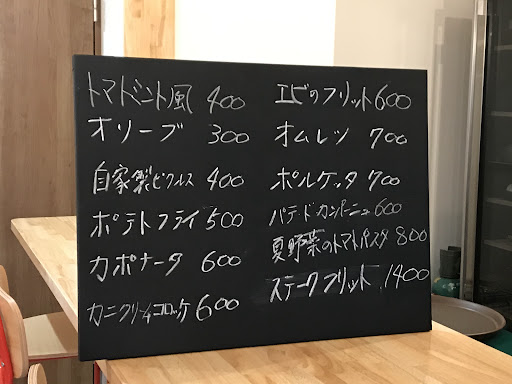 トマトミント風 400
オリーブ 300
自家製ピクルス 400
ポテトフライ 500
カポナータ 600
カニクリームコロッケ 600
エビのフリット 600
オムレツ 700
ポルケッタ 700
パテ・ド・カンパーニュ 600
夏野菜のトマトパスタ 800
ステークフリット 1400